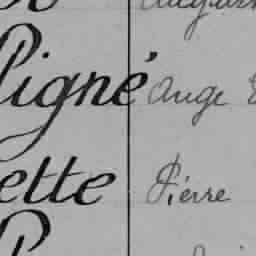 Pigné Ange
ette Pierre